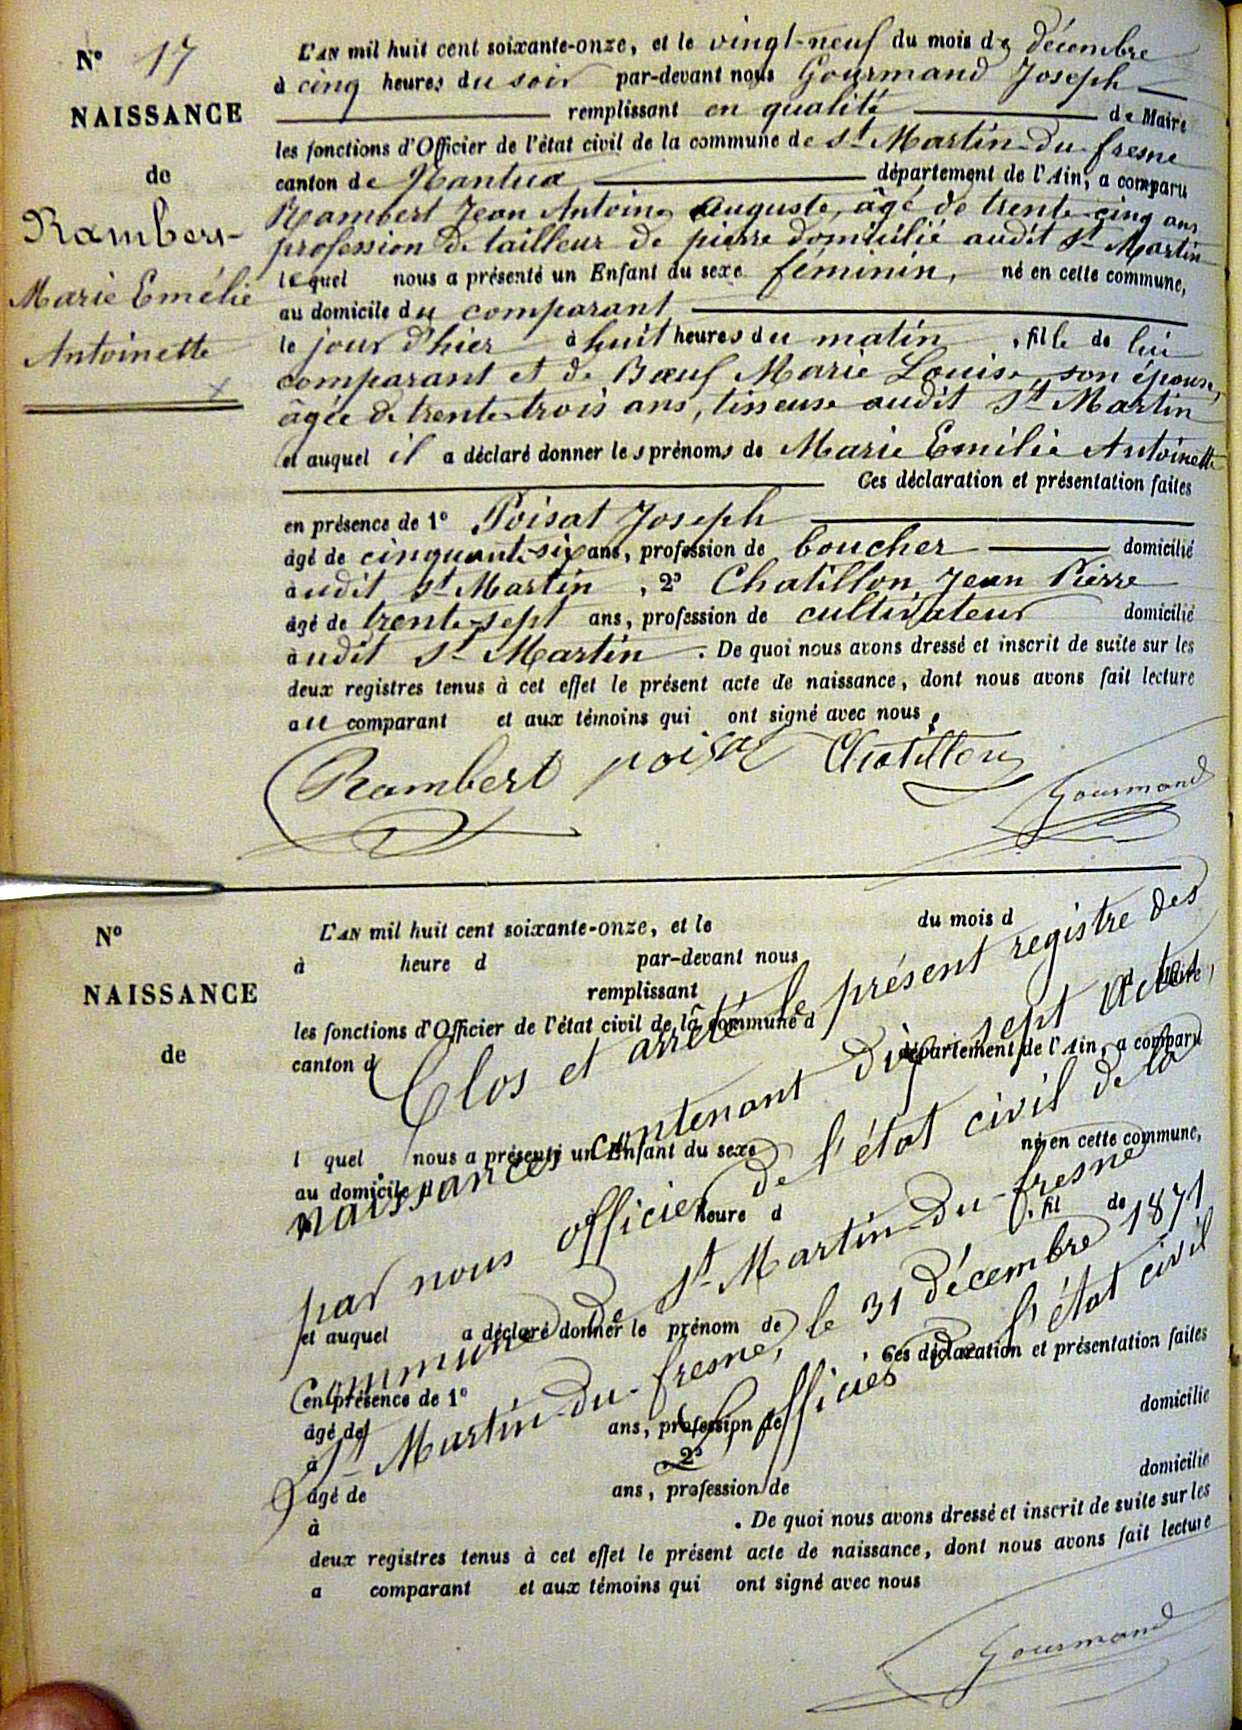 N° 17
NAISSANCE
de
Rambert
Marie Emélie
Antoinette
L'AN mil huit cent soixante-onze, et le vingt-neuf du mois de décembre
à cinq heures du soir par-devant nous Gourmand Joseph
remplissant en qualité de Maire
les fonctions d'Officier de l'état civil de la commune de St Martin-du-fresne
canton de Nantua département de l'Ain, a comparu
Rambert Jean Antoine Auguste, âgé de trente-cinq ans
profession de tailleur de pierre domicilié audit St Martin
lequel nous a présenté un Enfant du sexe féminin, né en cette commune,
au domicile du comparant
le jour d'hier à huit heures du matin, fille de lui
comparant et de Bœuf Marie Louise son épouse,
âgée de trente-trois ans, tisseuse audit St Martin
et auquel il a déclaré donner les prénoms de Marie Emilie Antoinette
Ces déclaration et présentation faites
en présence de 1° Poisat Joseph
âgé de cinquante-six ans, profession de boucher domicilié
audit St Martin, 2° Chatillon Jean Pierre
âgé de trente-sept ans, profession de cultivateur domicilié
audit St Martin. De quoi nous avons dressé et inscrit de suite sur les
deux registres tenus à cet effet le présent acte de naissance, dont nous avons fait lecture
au comparant et aux témoins qui ont signé avec nous.
Rambert poisat Chatillon Gourmand
N°
NAISSANCE
de
L'AN mil huit cent soixante-onze, et le du mois d
à heure d par-devant nous
remplissant
les fonctions d'Officier de l'état civil de la commune d
canton d département de l'Ain, a comparu
l quel nous a présenté un Enfant du sexe né en cette commune,
au domicile d
heure d , fil de
et auquel a déclaré donner le prénom de
Ces déclaration et présentation faites
en présence de 1°
âgé de ans, profession de domicilié
à 2°
âgé de ans, profession de domicilié
à . De quoi nous avons dressé et inscrit de suite sur les
deux registres tenus à cet effet le présent acte de naissance, dont nous avons fait lecture
a comparant et aux témoins qui ont signé avec nous
Clos et arrêté le présent registre des
naissances contenant dix-sept actes
par nous officier de l'état civil de la
Commune de St Martin-du-fresne
St Martin-du-fresne, le 31 décembre 1871
L'officier de l'état civil
Gourmand